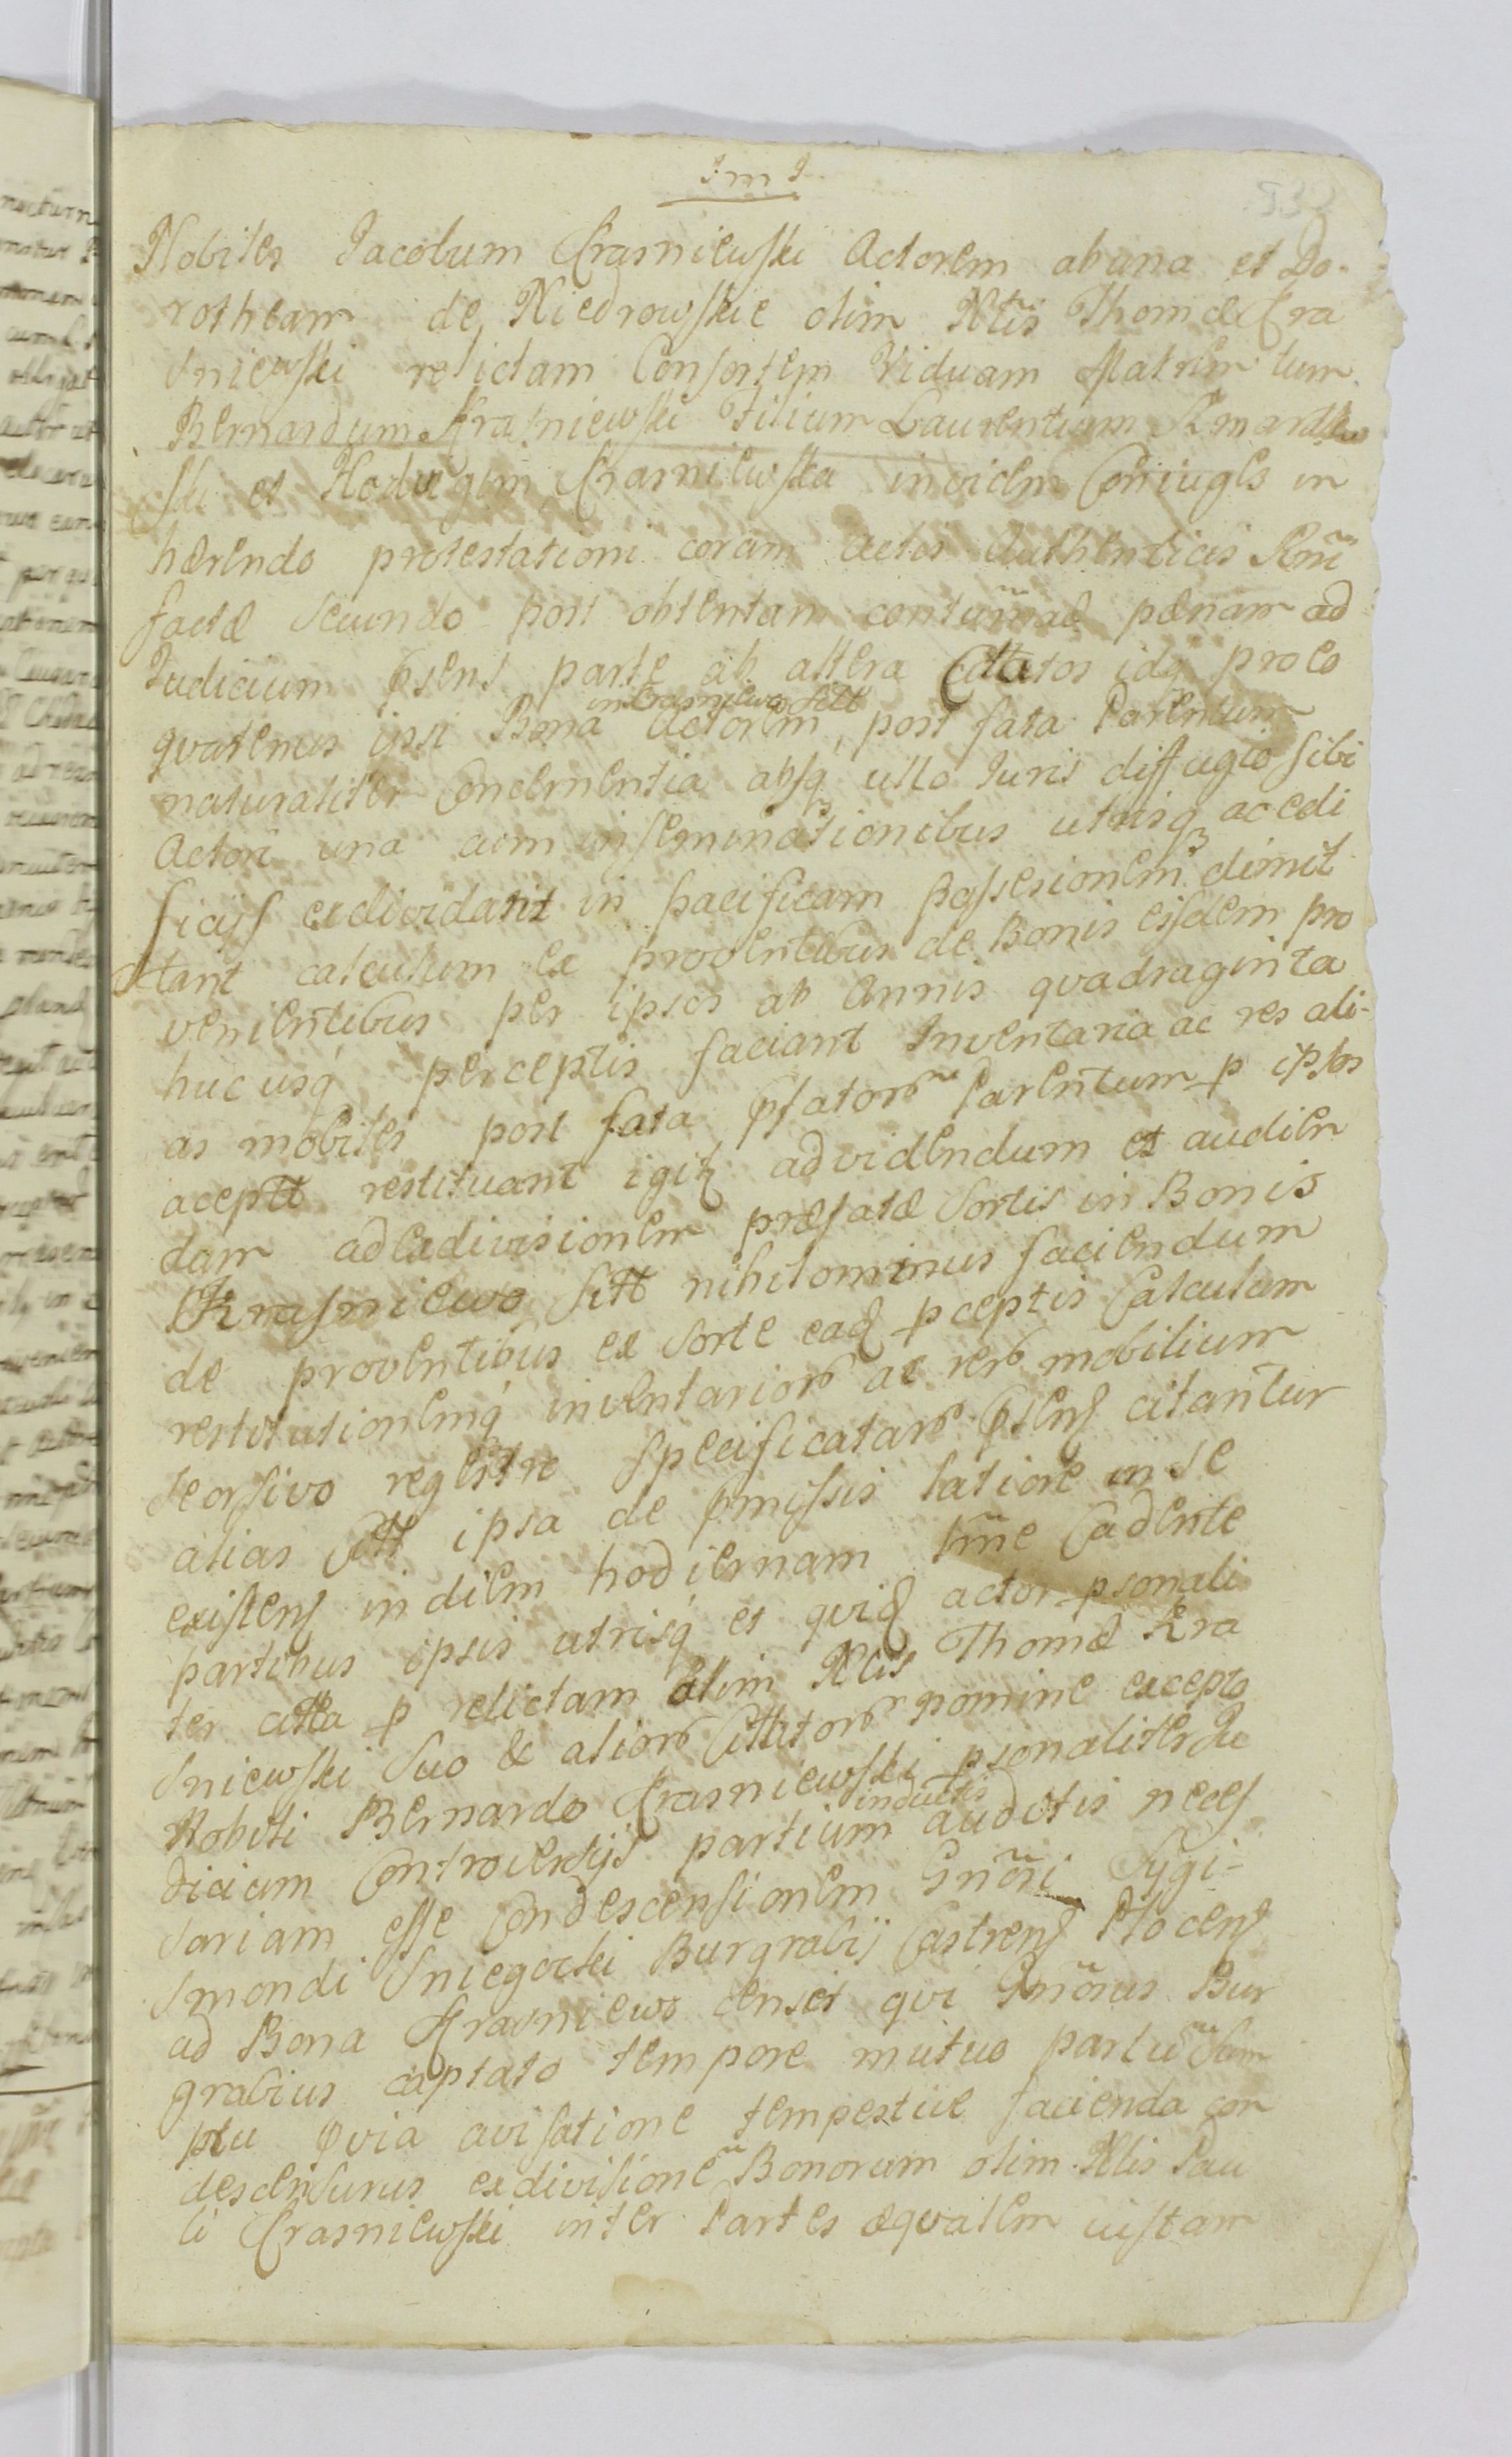 532
Nobiles Jacobum Crasniewski Actorem ab una et Do-
rotheam de Niedrowskie olim Nblis Thomæ Cra
sniewski relictam Consortem Viduam Matrem tum
Bernardum Krasniewski Filium Laurentium
ski et Hedvigem Crasniewska invicem Coniuges in
hærendo protestationi coram actis Authenticis
factæ secundo post obtentam pænam ad
Judicium psens parte ab altera Cittatos idq pro eo
in Crasniewo sitt
qvatenus ipsi Bona Actorem, post fata Parentum
naturaliter Concernentia absq ullo Juris diffugio sibi
Actori una cum inseminationibus utrisq ac edi
ficijs exdividant in pacificam possesionem dimit
tant calculum ex proventibus de Bonis eisdem pro
venientibus per ipsos ab Annis qvadraginta
huc usq perceptis faciant Inventaria ac res ali-
as mobiles post fata pfator Parentum p ipsos
acept restituant igit advidendum et audien
dam adexdivisionem præfatæ Sortis in Bonis
Krasniewo sitt nihilominus faciendum
de proventibus ex Sorte ead pceptis Calculum
restitutionemq inventarior ac rer mobilium
seorsivo regestre specificatar psens citantur
alias Citt ipsa de pmissis latiore in se
existens in diem hodiernam tme Cadente
partibus ipsis utrisq et qvid actor psonali
ter citta p relictam olim Nblis Thomæ Kra
sniewski suo & alior Cittator nomine excepto
Nobili Bernardo Crasniewski psonaliter Ju
inductis
dicium Controversijs partium auditis neces
sariam esse Condescensionem Gnosi Sygi-
smondi Sniegocki Burgrabij Castrens Plocens
ad Bona Crasniewo censet qvi Gnosus Bur
grabius captato tempore mutuo partiu Sum
ptu qvia avisatione tempestive facienda con
descensurus exdivisione Bonorum olim Nblis Pau
li Crasniewski inter Partes æqvalem iustam